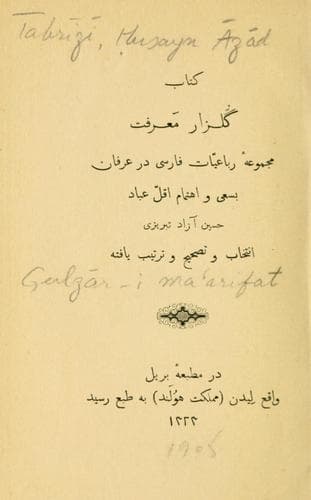 Tabrīzī, Ḥusayn Āzād
کتاب
گُلزار مَعرفت
مجموعهٔ رباعیّات فارسی در عرفان
بسعی و اهتمام اقلّ عباد
حسین آزاد تبریزی
انتخاب و تصحیح و ترتیب یافته
Gulzār-i ma'arifat
در مطبعهٔ بریل
واقع لیدن (مملکت هوُلَند) به طبع رسید
۱۳۲۴